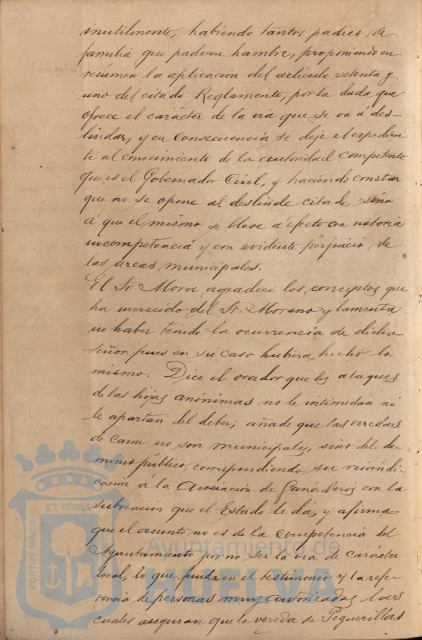 inutilmente, habiendo tantos padres de
familia que padecen hambre, proponiendo en
resúmen la aplicación del artículo setenta y
uno del citado Reglamento, por la duda que
ofrece el carácter de la via que se va á des-
lindar, y en consecuencia se deje el expedien
te al conocimiento de la autoridad competente
que es el Gobernador Civil, y haciendo constar
que no se opone al deslinde citado, sino
á que el mismo se lleve á efecto con notoria
incompetencia y con evidente perjuicio de
las arcas municipales.
El Sr. Mora agradece los conceptos que
ha merecido del Sr. Moreno y lamenta
no haber tenido la ocurrencia de dicho
señor pues en su caso hubiera hecho lo
mismo. Dice el orador que los ataques
de las hojas anónimas no le intimidan ni
le apartan del deber; añade que las veredas
de carne no son municipales, sino del do-
minio público, correspondiendo su reivindi
cación á la Asociación de Ganaderos con la
subvencion que el Estado le da, y afirma
que el asunto no es de la competencia del
Ayuntamiento por no ser la via de carácter
local, lo que funda en el testimonio y la refe
rencia de personas muy autorizadas, las
cuales aseguran que la vereda de Peguerillas
ET TERRA
PORTUS MARIS
Ayuntamiento de
HUELVA